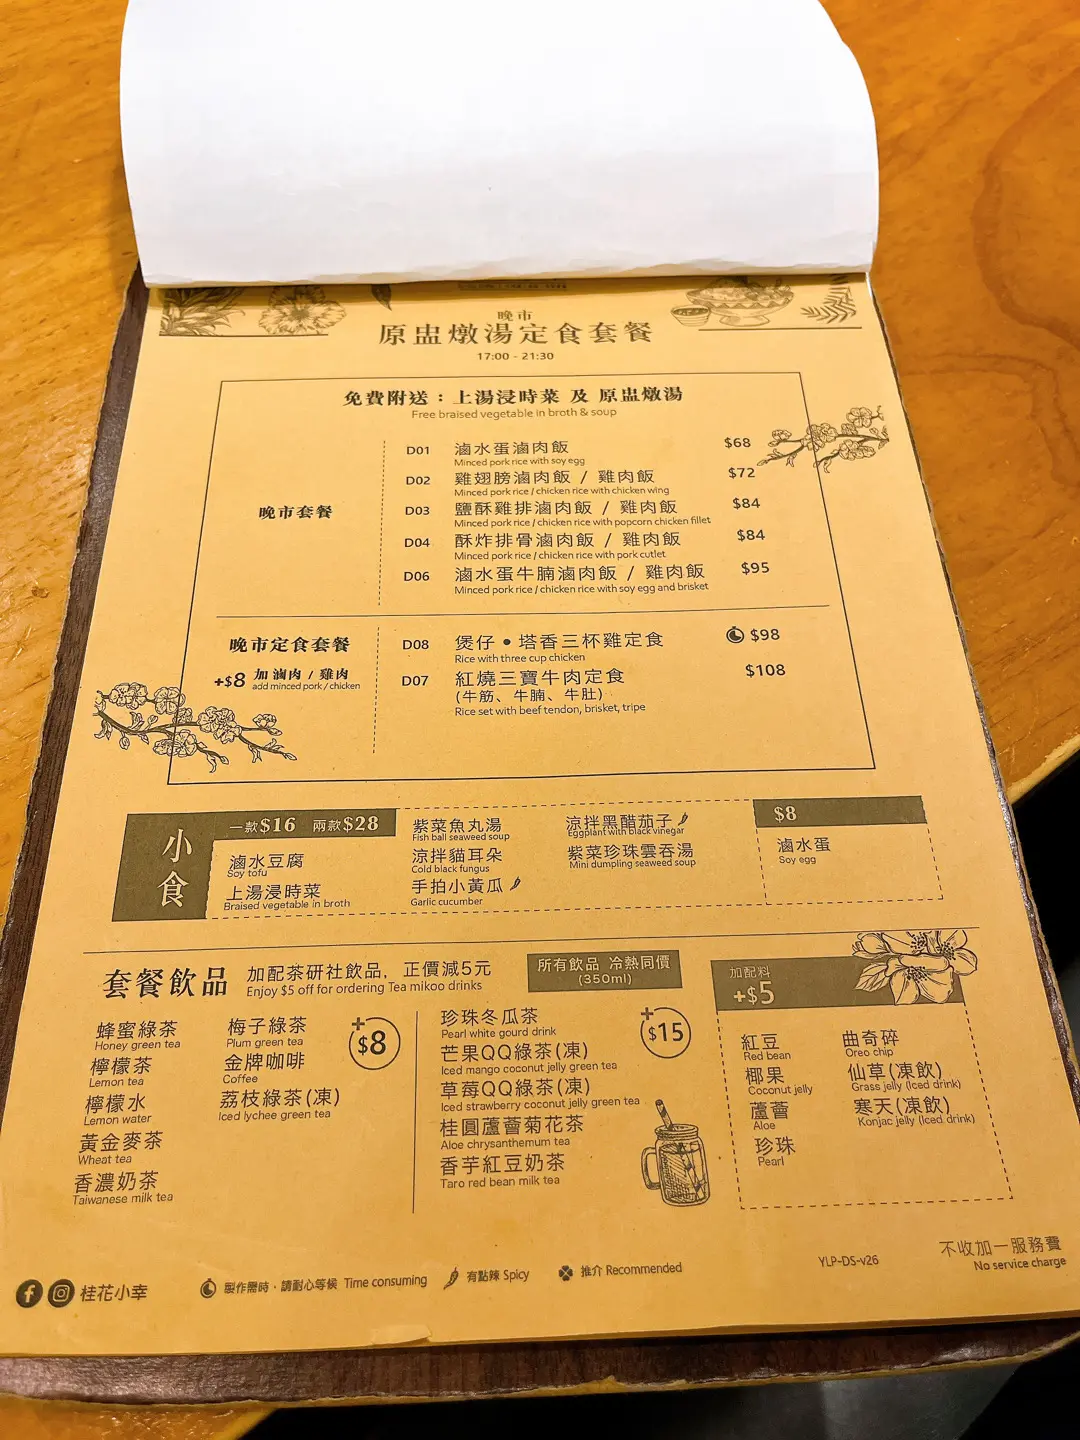 晚市
原盅燉湯定食套餐
17:00 - 21:30
免費附送：上湯浸時菜 及 原盅燉湯
Free braised vegetable in broth & soup
晚市套餐
D01 滷水蛋滷肉飯 $68
Minced pork rice with soy egg
D02 雞翅膀滷肉飯 / 雞肉飯 $72
Minced pork rice / chicken rice with chicken wing
D03 鹽酥雞排滷肉飯 / 雞肉飯 $84
Minced pork rice / chicken rice with popcorn chicken fillet
D04 酥炸排骨滷肉飯 / 雞肉飯 $84
Minced pork rice / chicken rice with pork cutlet
D06 滷水蛋牛腩滷肉飯 / 雞肉飯 $95
Minced pork rice / chicken rice with soy egg and brisket
晚市定食套餐
+$8 加 滷肉 / 雞肉
add minced pork / chicken
D08 煲仔・塔香三杯雞定食 $98
Rice with three cup chicken
D07 紅燒三寶牛肉定食 $108
(牛筋、牛腩、牛肚)
Rice set with beef tendon, brisket, tripe
小食
一款$16 兩款$28
滷水豆腐
Soy tofu
上湯浸時菜
Braised vegetable in broth
紫菜魚丸湯
Fish ball seaweed soup
涼拌貓耳朵
Cold black fungus
手拍小黃瓜
Garlic cucumber
涼拌黑醋茄子
Eggplant with black vinegar
紫菜珍珠雲吞湯
Mini dumpling seaweed soup
$8
滷水蛋
Soy egg
套餐飲品
加配茶研社飲品，正價減5元
Enjoy $5 off for ordering Tea mikoo drinks
所有飲品 冷熱同價
(350ml)
+$8
蜂蜜綠茶
Honey green tea
檸檬茶
Lemon tea
檸檬水
Lemon water
黃金麥茶
Wheat tea
香濃奶茶
Taiwanese milk tea
梅子綠茶
Plum green tea
金牌咖啡
Coffee
荔枝綠茶(凍)
Iced lychee green tea
+$15
珍珠冬瓜茶
Pearl white gourd drink
芒果QQ綠茶(凍)
Iced mango coconut jelly green tea
草莓QQ綠茶(凍)
Iced strawberry coconut jelly green tea
桂圓蘆薈菊花茶
Aloe chrysanthemum tea
香芋紅豆奶茶
Taro red bean milk tea
加配料
+$5
紅豆
Red bean
椰果
Coconut jelly
蘆薈
Aloe
珍珠
Pearl
曲奇碎
Oreo chip
仙草(凍飲)
Grass jelly (Iced drink)
寒天(凍飲)
Konjac jelly (Iced drink)
桂花小幸
製作需時，請耐心等候 Time consuming
有點辣 Spicy
推介 Recommended
YLP-DS-v26
不收加一服務費
No service charge